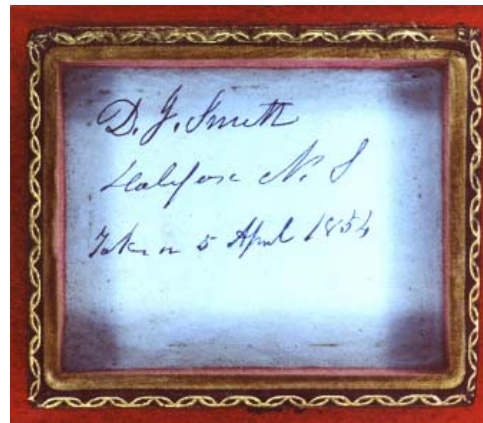 D. J. Smith
Halifax N. S
Taken 5 April 1854